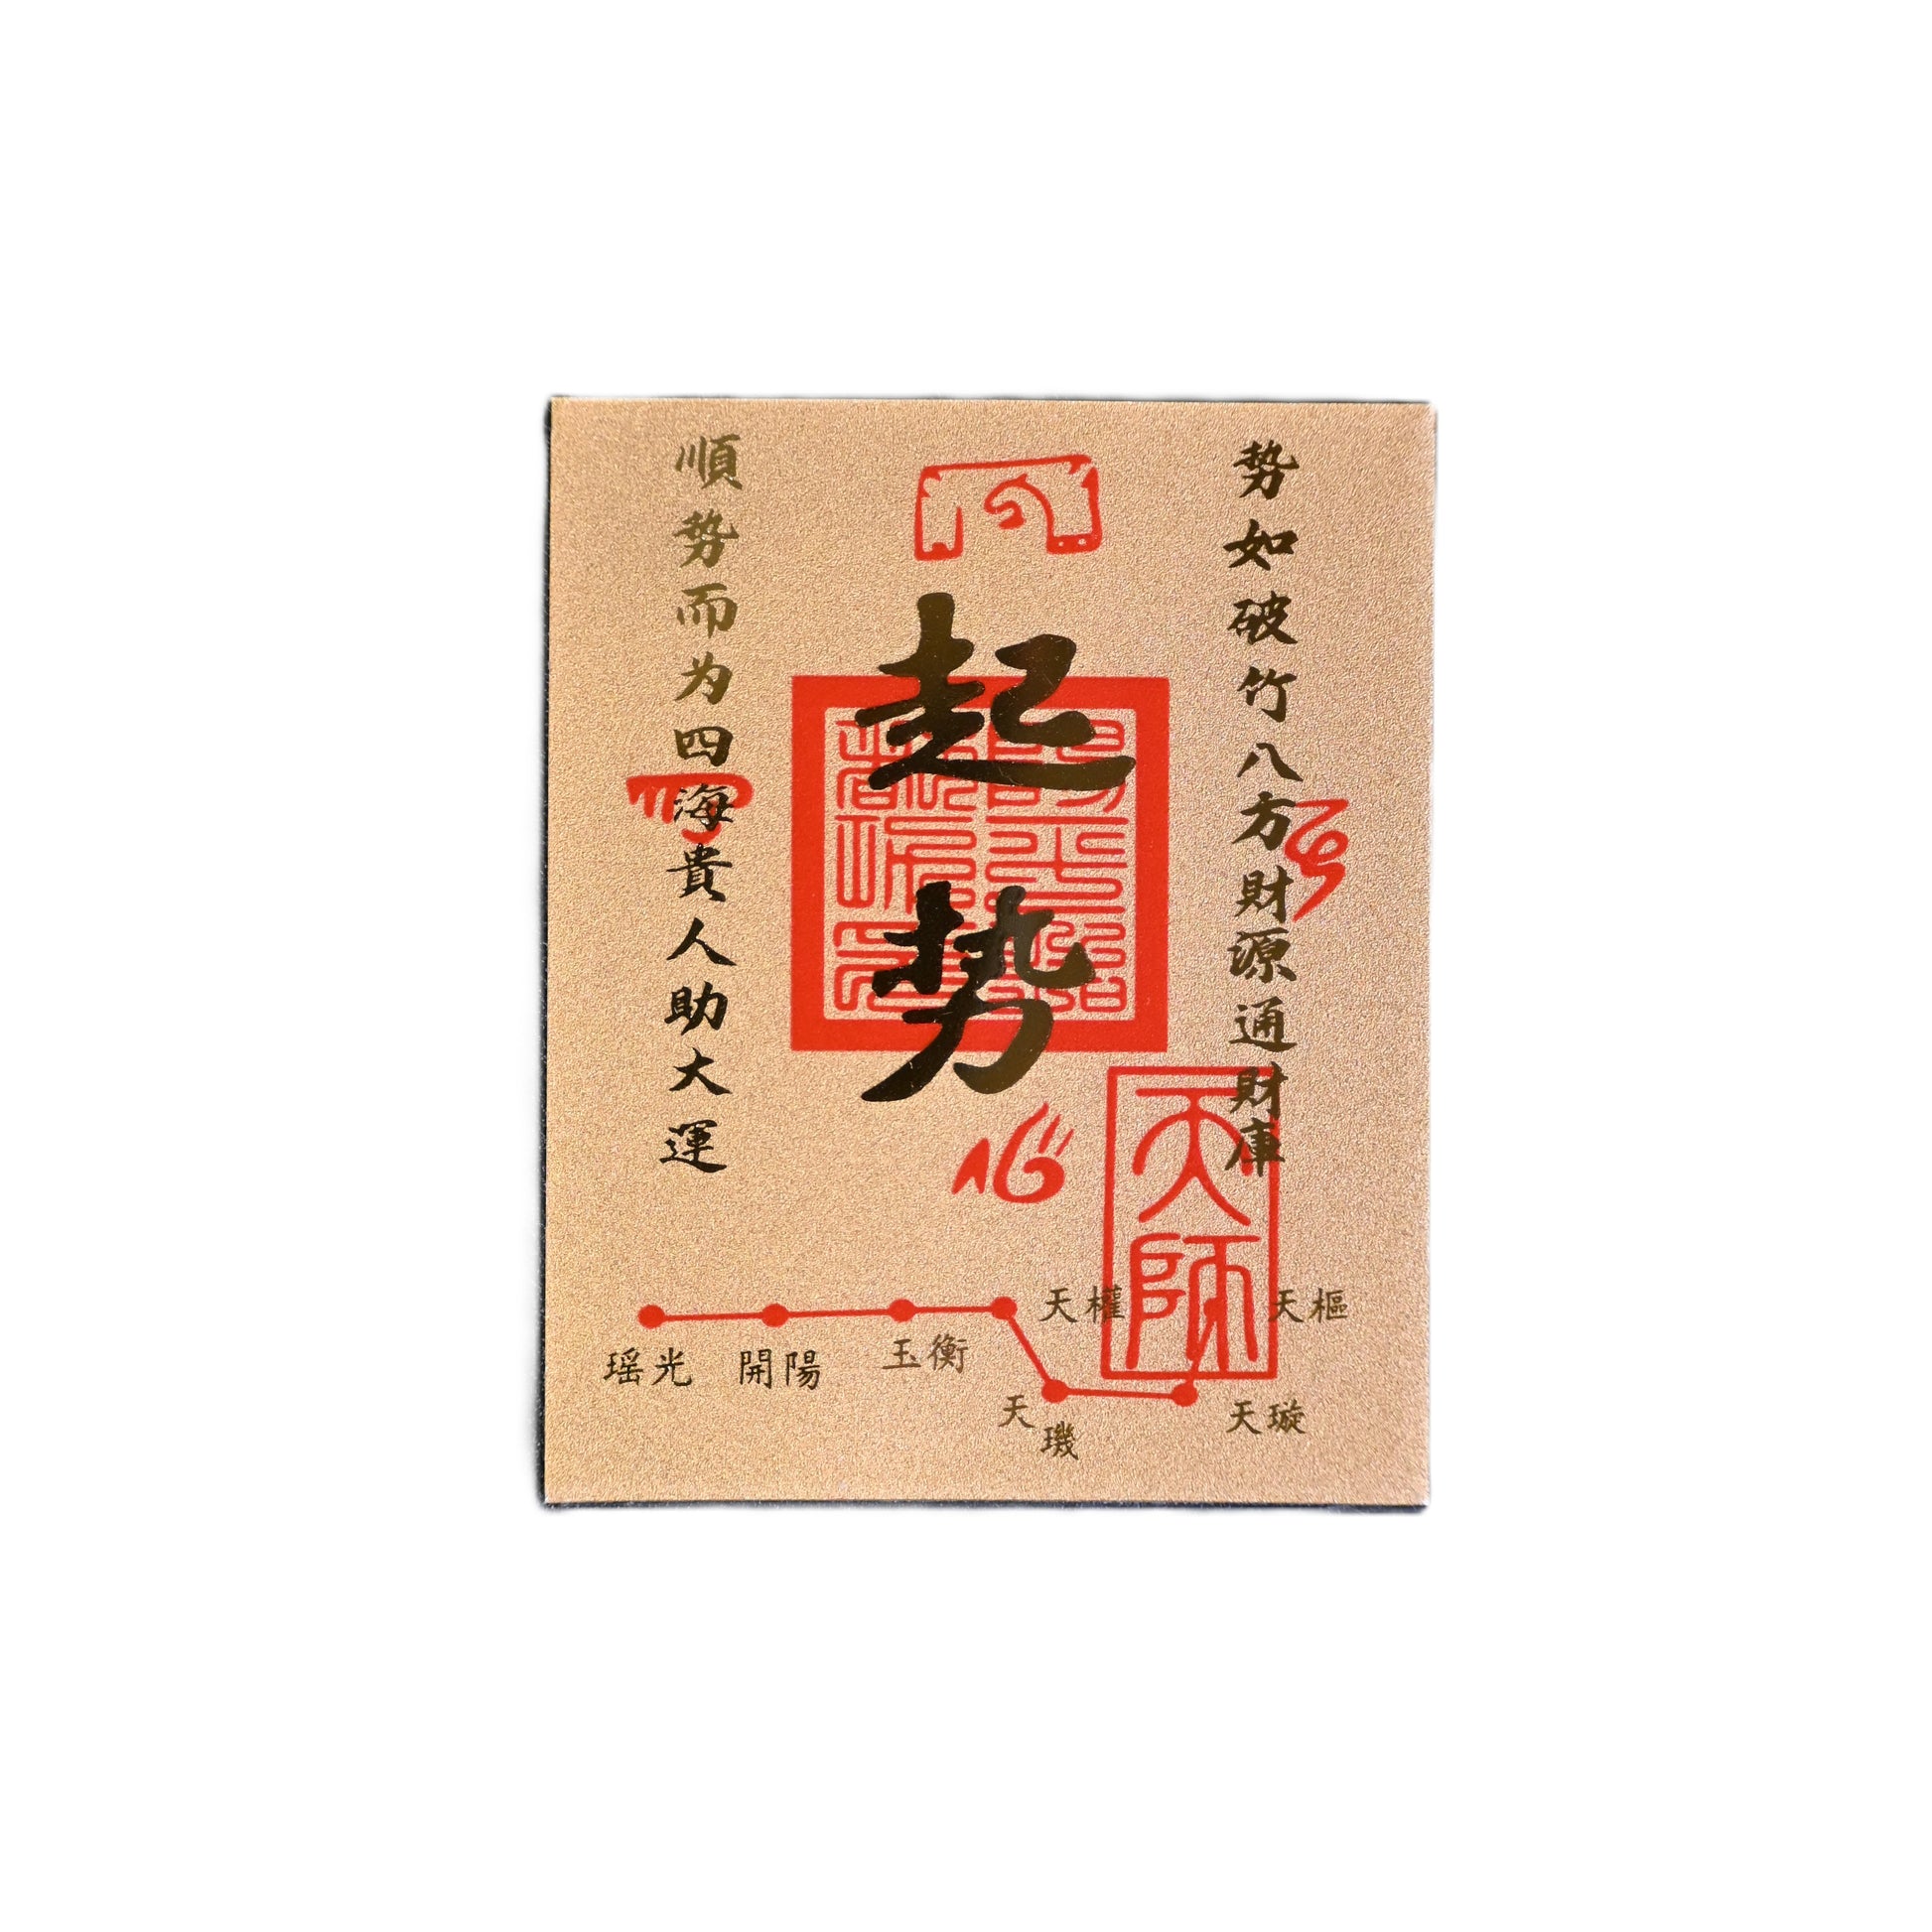 势如破竹八方財源通財庫
起势
順势而为四海貴人助大運
天師
天樞
天璇
天璣
天權
玉衡
開陽
瑶光